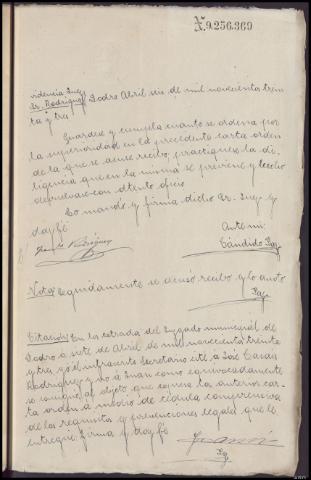 N. 9.256.369
videncia Juez
Sr. Rodriguez Dodro Abril seis de mil novecientos trein
ta y tres
Guardese y cumpla cuanto se ordena por
la superioridad en la precedente carta orden
de la que se acuse recibo, practiquese la di-
ligencia que en la misma se previene y hecho
devuelvase con atento oficio
Lo mandó y firma dicho Sr. Juez y
doy fé
Rodriguez
Ante mi
Cándido
Nota; Seguidamente se acusó recibo y lo anoto
Citación; En la estrada del Juzgado municipal de
Dodro a siete de Abril de mil novecientos treinta
y tres yo el infrascrito Secretario cité a José Casais
Rodriguez y no a Juan como equivocadamente
se consigna, al objeto que expresa la anterior car-
ta orden a medio de cédula comprensiva
de los requisitos y prevenciones legales que le
entregué firma y doy fé